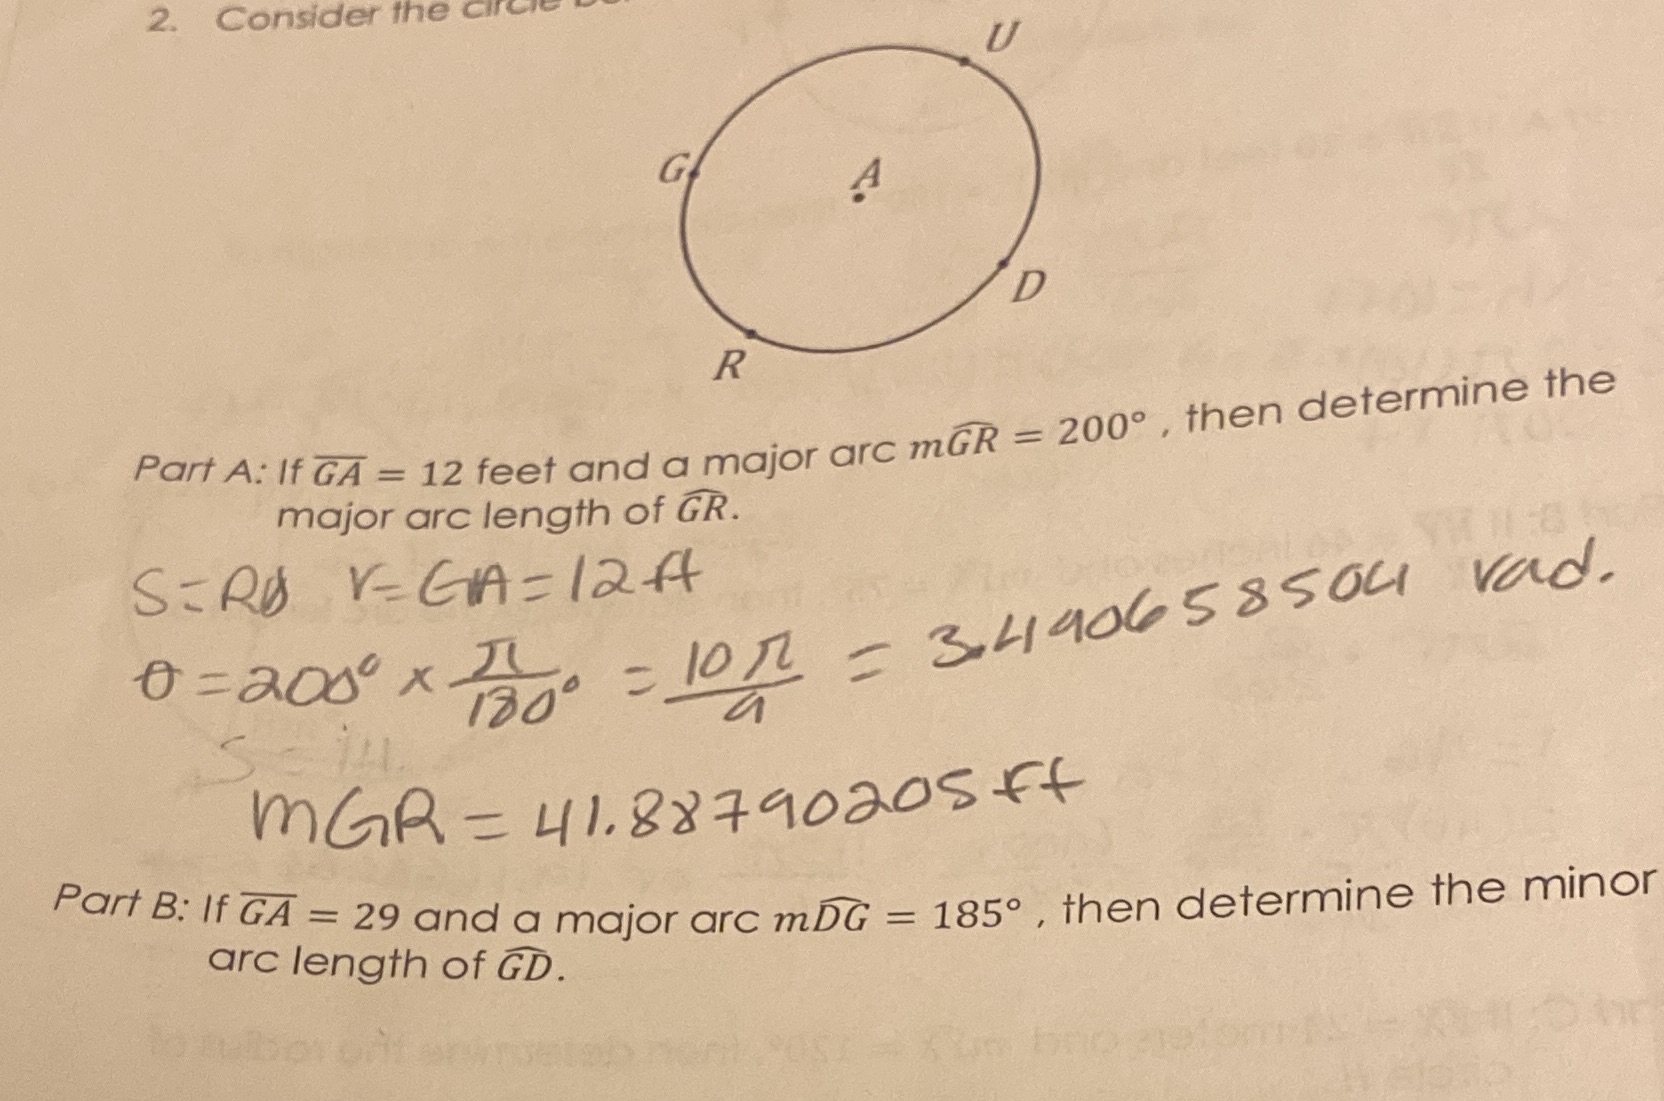 2. Consider the circle
U
G
A
D
R
Part A: If GA = 12 feet and a major arc mGR = 200°, then determine the
major arc length of GR.
S=RØ r=GA=12ft
θ=200° × π/180° = 10π/9 = 3.490658504 rad.
S = 14.
mGR = 41.88790205ft
Part B: If GA = 29 and a major arc mDG = 185°, then determine the minor
arc length of GD.